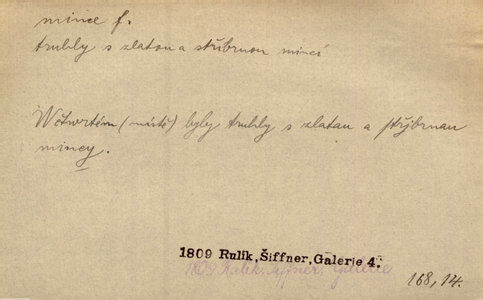 mince f.
truhly s zlatou a stříbrnou mincí
W čtwrtém (městě) byly truhly s zlatau a střjbrnau
mincy.
1809 Rulík, Šiffner, Galerie 4.
1809 Rulík, Šiffner, Galerie
168, 14.